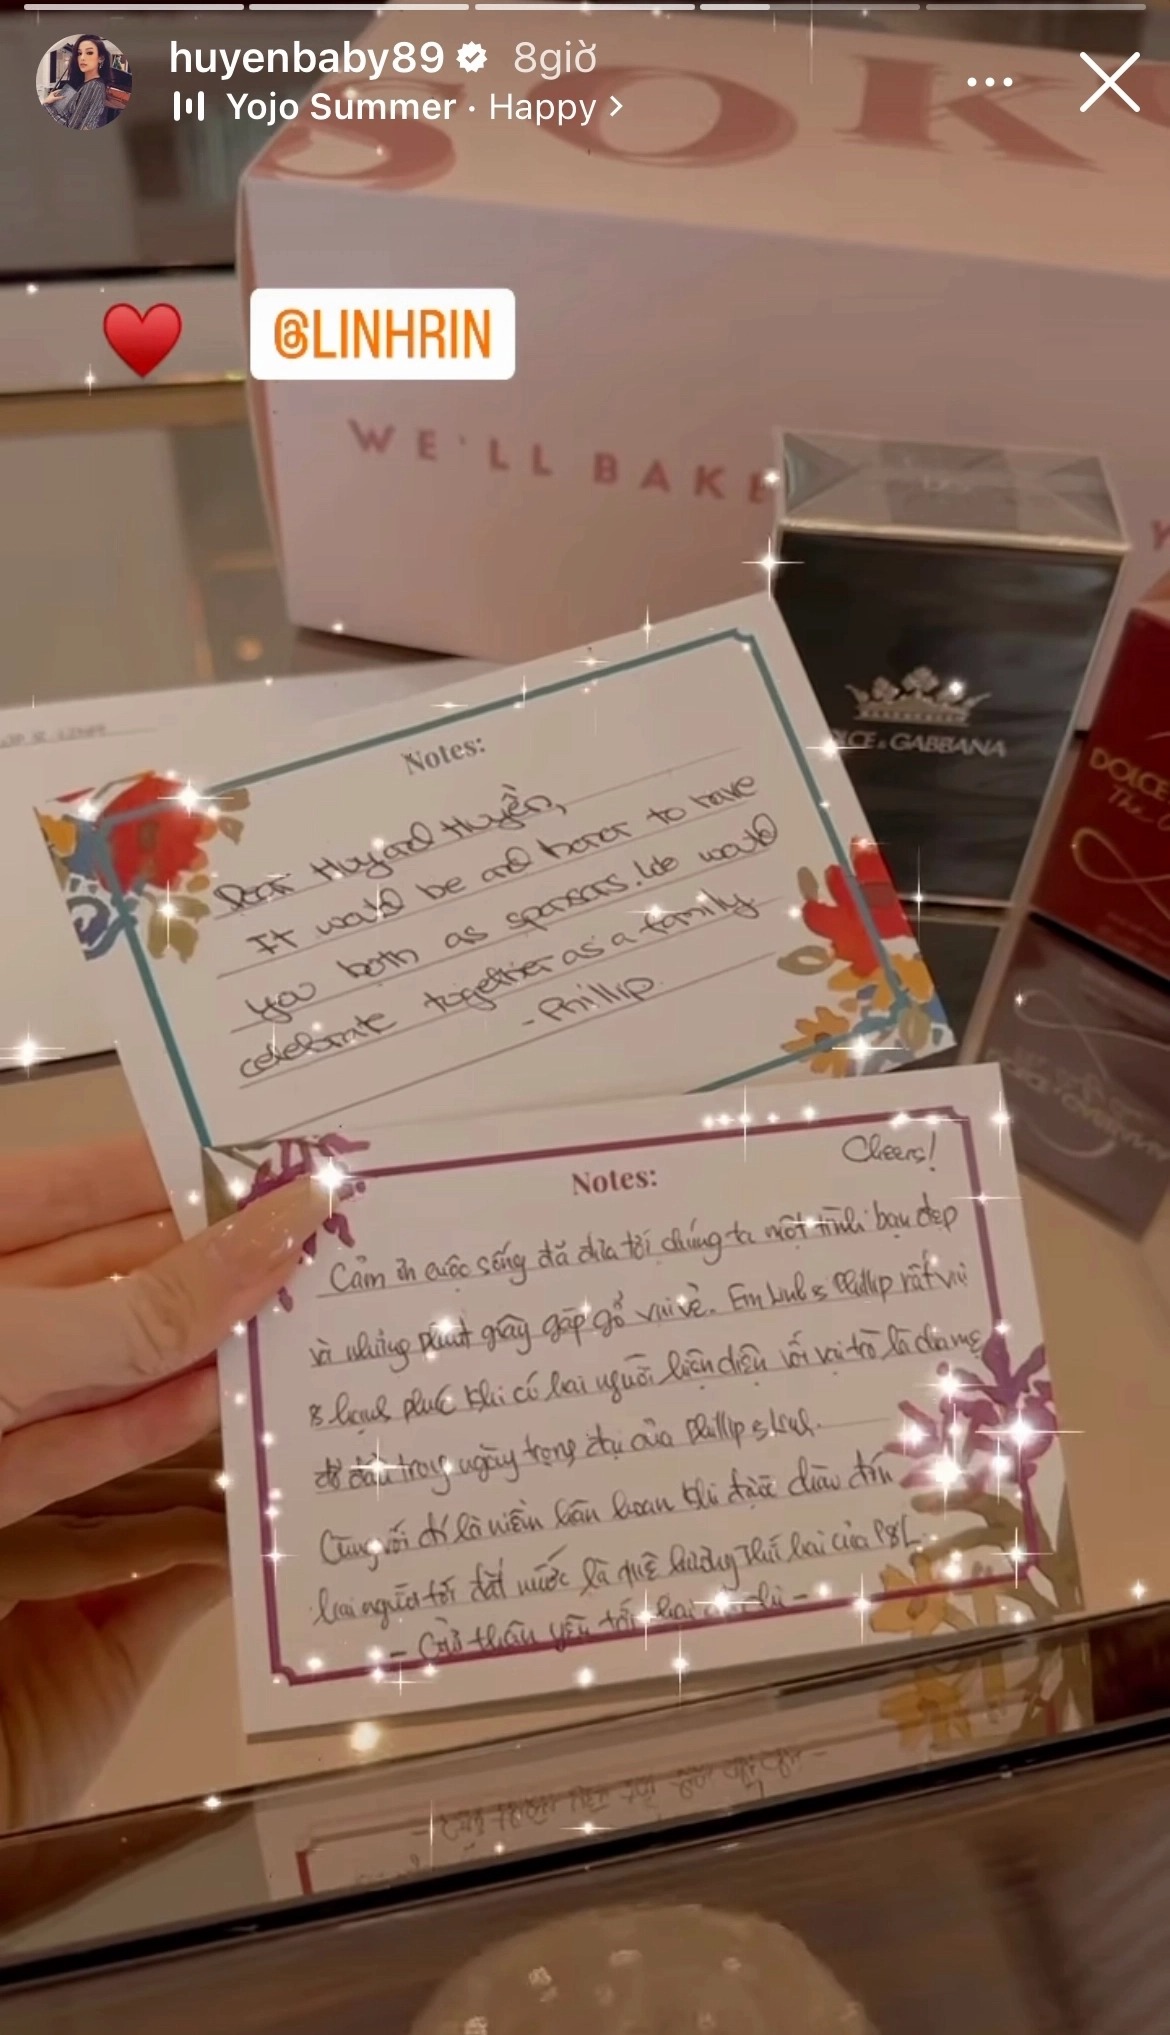 huyenbaby89 8giờ
Yojo Summer · Happy
SOK
@LINHRIN
WE'LL BAKE
DOLCE
The
LCE & GABBANA
Notes:
Dear Huy and Huyền,
It would be and honor to have
you both as sponsors. We would
celebrate together as a family
- Phillip
Cheers!
Notes:
Cảm ơn cuộc sống đã đưa tới chúng ta một tình bạn đẹp
và những phút giây gặp gỡ vui vẻ. Em Linh & Phillip rất vui
& hạnh phúc khi có hai người hiện diện với vai trò là cha mẹ
đỡ đầu trong ngày trọng đại của Phillip & Linh.
Cùng với đó là niềm hân hoan khi được chào đón
hai người tới đất nước là quê hương thứ hai của P&L.
- Gửi thân yêu tới hai anh chị -